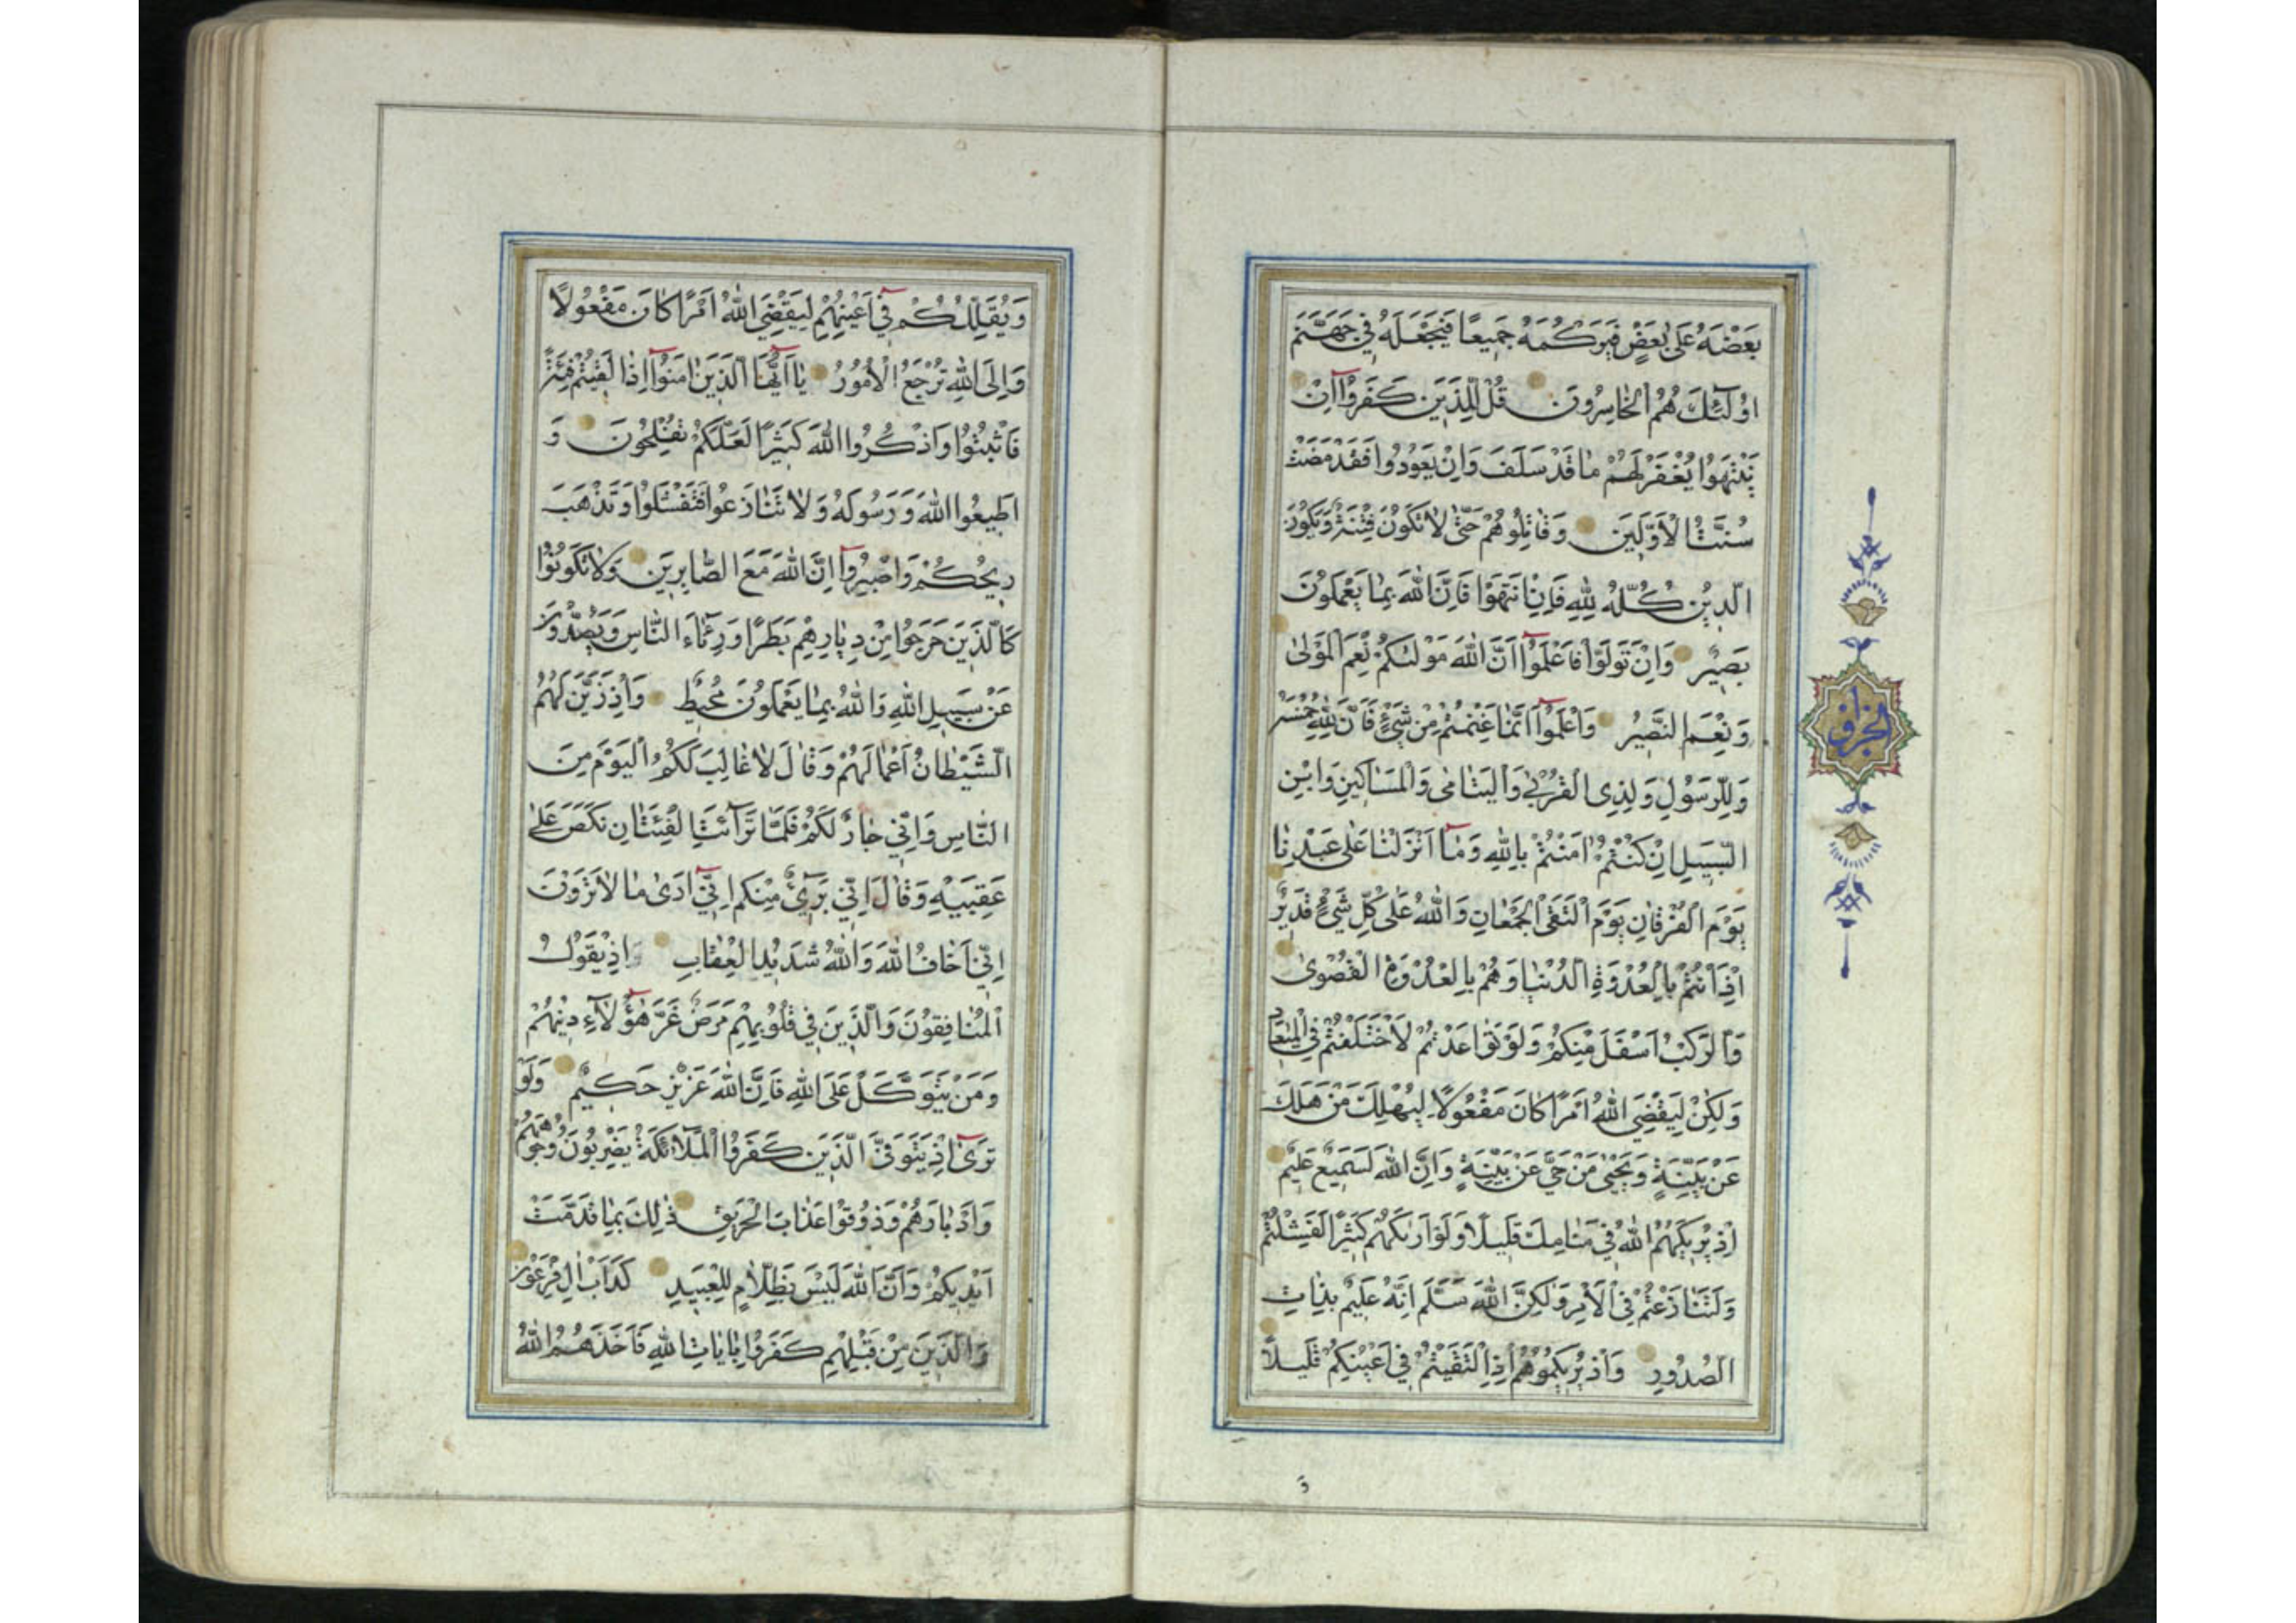 بَعْضَهُ عَلىٰ بَعْضٍ فَيَرْكُمَهُ جَمِيعًا فَيَجْعَلَهُ فِي جَهَنَّمَ
اُولٰٓئِكَ هُمُ الْخٰاسِرُونَ قُلْ لِلَّذِينَ كَفَرُوٓا اِنْ
يَنْتَهُوا يُغْفَرْ لَهُمْ مٰا قَدْ سَلَفَ وَاِنْ يَعُودُوا فَقَدْ مَضَتْ
سُنَّتُ الْاَوَّلِينَ وَقٰاتِلُوهُمْ حَتّٰى لٰا تَكُونَ فِتْنَةٌ وَيَكُونَ
الدِّينُ كُلُّهُ لِلّٰهِ فَاِنِ انْتَهَوْا فَاِنَّ اللّٰهَ بِمٰا يَعْمَلُونَ
بَصِيرٌ وَاِنْ تَوَلَّوْا فَاعْلَمُوٓا اَنَّ اللّٰهَ مَوْلٰىكُمْ نِعْمَ الْمَوْلىٰ
وَنِعْمَ النَّصِيرُ وَاعْلَمُوٓا اَنَّمٰا غَنِمْتُمْ مِنْ شَيْءٍ فَاَنَّ لِلّٰهِ خُمُسَهُ
وَلِلرَّسُولِ وَلِذِي الْقُرْبىٰ وَالْيَتٰامىٰ وَالْمَسٰاكِينِ وَابْنِ
السَّبِيلِ اِنْ كُنْتُمْ اٰمَنْتُمْ بِاللّٰهِ وَمٰٓا اَنْزَلْنٰا عَلىٰ عَبْدِنٰا
يَوْمَ الْفُرْقٰانِ يَوْمَ الْتَقَى الْجَمْعٰانِ وَاللّٰهُ عَلىٰ كُلِّ شَيْءٍ قَدِيرٌ
اِذْ اَنْتُمْ بِالْعُدْوَةِ الدُّنْيٰا وَهُمْ بِالْعُدْوَةِ الْقُصْوىٰ
وَالرَّكْبُ اَسْفَلَ مِنْكُمْ وَلَوْ تَوٰاعَدْتُمْ لَاخْتَلَفْتُمْ فِي الْمِيعٰادِ
وَلٰكِنْ لِيَقْضِيَ اللّٰهُ اَمْرًا كٰانَ مَفْعُولًا لِيَهْلِكَ مَنْ هَلَكَ
عَنْ بَيِّنَةٍ وَيَحْيىٰ مَنْ حَيَّ عَنْ بَيِّنَةٍ وَاِنَّ اللّٰهَ لَسَمِيعٌ عَلِيمٌ
اِذْ يُرِيكَهُمُ اللّٰهُ فِي مَنٰامِكَ قَلِيلًا وَلَوْ اَرٰىكَهُمْ كَثِيرًا لَفَشِلْتُمْ
وَلَتَنٰازَعْتُمْ فِي الْاَمْرِ وَلٰكِنَّ اللّٰهَ سَلَّمَ اِنَّهُ عَلِيمٌ بِذٰاتِ
الصُّدُورِ وَاِذْ يُرِيكُمُوهُمْ اِذِ الْتَقَيْتُمْ فِي اَعْيُنِكُمْ قَلِيلًا
وَيُقَلِّلُكُمْ فِيٓ اَعْيُنِهِمْ لِيَقْضِيَ اللّٰهُ اَمْرًا كٰانَ مَفْعُولًا
وَاِلَى اللّٰهِ تُرْجَعُ الْاُمُورُ يٰٓا اَيُّهَا الَّذِينَ اٰمَنُوٓا اِذٰا لَقِيتُمْ فِئَةً
فَاثْبُتُوا وَاذْكُرُوا اللّٰهَ كَثِيرًا لَعَلَّكُمْ تُفْلِحُونَ وَ
اَطِيعُوا اللّٰهَ وَرَسُولَهُ وَلٰا تَنٰازَعُوا فَتَفْشَلُوا وَتَذْهَبَ
رِيحُكُمْ وَاصْبِرُوٓا اِنَّ اللّٰهَ مَعَ الصّٰابِرِينَ وَلٰا تَكُونُوا
كَالَّذِينَ خَرَجُوا مِنْ دِيٰارِهِمْ بَطَرًا وَرِئٰٓاءَ النّٰاسِ وَيَصُدُّونَ
عَنْ سَبِيلِ اللّٰهِ وَاللّٰهُ بِمٰا يَعْمَلُونَ مُحِيطٌ وَاِذْ زَيَّنَ لَهُمُ
الشَّيْطٰانُ اَعْمٰالَهُمْ وَقٰالَ لٰا غٰالِبَ لَكُمُ الْيَوْمَ مِنَ
النّٰاسِ وَاِنِّي جٰارٌ لَكُمْ فَلَمّٰا تَرٰٓائَتِ الْفِئَتٰانِ نَكَصَ عَلىٰ
عَقِبَيْهِ وَقٰالَ اِنِّي بَرِيٓءٌ مِنْكُمْ اِنِّيٓ اَرىٰ مٰا لٰا تَرَوْنَ
اِنِّيٓ اَخٰافُ اللّٰهَ وَاللّٰهُ شَدِيدُ الْعِقٰابِ اِذْ يَقُولُ
الْمُنٰافِقُونَ وَالَّذِينَ فِي قُلُوبِهِمْ مَرَضٌ غَرَّ هٰٓؤُلٰٓاءِ دِينُهُمْ
وَمَنْ يَتَوَكَّلْ عَلَى اللّٰهِ فَاِنَّ اللّٰهَ عَزِيزٌ حَكِيمٌ وَلَوْ
تَرىٰٓ اِذْ يَتَوَفَّى الَّذِينَ كَفَرُوا الْمَلٰٓائِكَةُ يَضْرِبُونَ وُجُوهَهُمْ
وَاَدْبٰارَهُمْ وَذُوقُوا عَذٰابَ الْحَرِيقِ ذٰلِكَ بِمٰا قَدَّمَتْ
اَيْدِيكُمْ وَاَنَّ اللّٰهَ لَيْسَ بِظَلّٰامٍ لِلْعَبِيدِ كَدَأْبِ اٰلِ فِرْعَوْنَ
وَالَّذِينَ مِنْ قَبْلِهِمْ كَفَرُوا بِاٰيٰاتِ اللّٰهِ فَاَخَذَهُمُ اللّٰهُ